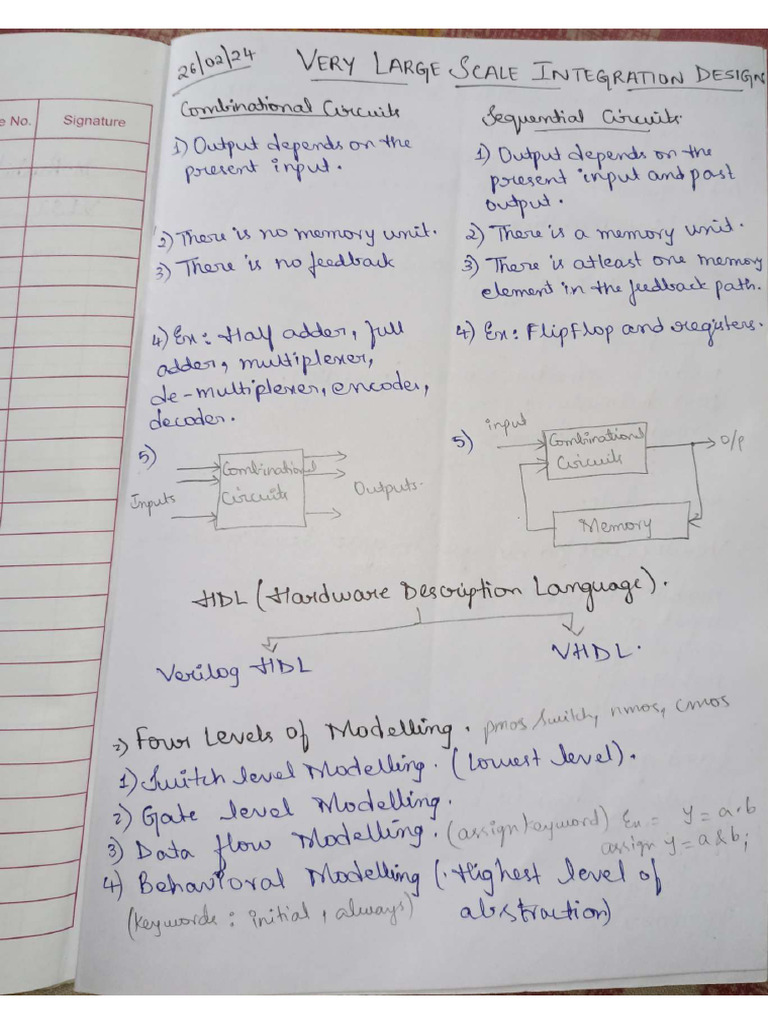 e No.
Signature
26/02/24
VERY LARGE SCALE INTEGRATION DESIGN
Combinational Circuits
1) Output depends on the
present input.
2) There is no memory unit.
3) There is no feedback
4) Ex: Half adder, full
adder, multiplexer,
de-multiplexer, encoder,
decoder.
5)
Inputs
Combinational
Circuits
Outputs.
Sequential Circuits.
1) Output depends on the
present input and past
output.
2) There is a memory unit.
3) There is atleast one memory
element in the feedback path.
4) Ex: FlipFlop and registers.
5)
input
Combinational
Circuits
O/P
Memory
HDL (Hardware Description Language).
Verilog HDL
VHDL.
2) Four Levels of Modelling. pmos switch, nmos, cmos
1) Switch level Modelling. (Lowest level).
2) Gate level Modelling.
3) Data flow Modelling. (assign keyword) Ex = y = a.b
assign y = a & b;
4) Behavioral Modelling (. Highest level of
abstraction)
(keywords : initial, always)